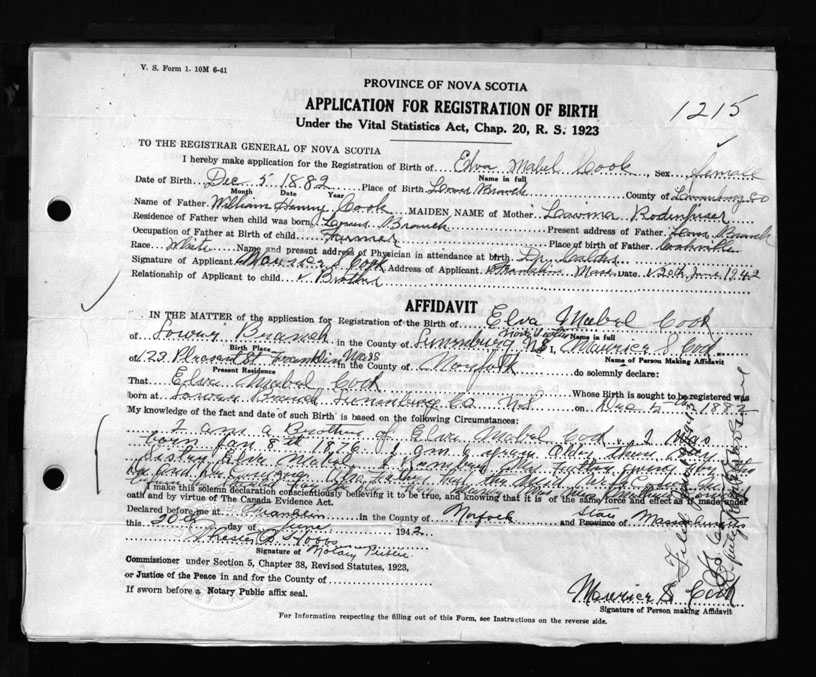 V. S. Form 1. 10M 6-41
PROVINCE OF NOVA SCOTIA
APPLICATION FOR REGISTRATION OF BIRTH
1215
Under the Vital Statistics Act, Chap. 20, R. S. 1923
TO THE REGISTRAR GENERAL OF NOVA SCOTIA
I hereby make application for the Registration of Birth of Elva Mabel Cook Sex female
Name in full
Date of Birth Dec 5 1882 Place of Birth Lower Branch County of Lunenburg Co
Month Date Year
Name of Father William Henry Cook MAIDEN NAME of Mother
Residence of Father when child was born Lower Branch Present address of Father Lower Branch
Occupation of Father at Birth of child Farmer Place of birth of Father
Race White Name and present address of Physician in attendance at birth Dr.
Signature of Applicant Maurice S Cook Address of Applicant Franklin Mass Date 20th June 1942
Relationship of Applicant to child Brother
AFFIDAVIT
IN THE MATTER of the application for Registration of the Birth of Elva Mabel Cook
Name in full
of Lower Branch in the County of Lunenburg N S I, Maurice S Cook
Birth Place Name of Person Making Affidavit
of 123 Pleasant St Franklin Mass in the County of Norfolk do solemnly declare:
Present Residence
That Elva Mabel Cook Whose Birth is sought to be registered was
born at Lower Branch Lunenburg Co N S on Dec 5 1882
My knowledge of the fact and date of such Birth is based on the following Circumstances:
I am a Brother of Elva Mabel Cook. I was
born Jan 8th 1876 I am 6 years older than my
sister Elva Mabel I
I make this solemn declaration conscientiously believing it to be true, and knowing that it is of the same force and effect as if made under
oath and by virtue of The Canada Evidence Act.
Declared before me at Franklin in the County of Norfolk State and Province of Massachusetts
this 20th day of June 1942
Signature of Notary Public
Commissioner under Section 5, Chapter 38, Revised Statutes, 1923,
or Justice of the Peace in and for the County of
If sworn before a Notary Public affix seal.
Maurice S Cook
Signature of Person making Affidavit
For Information respecting the filling out of this Form, see Instructions on the reverse side.